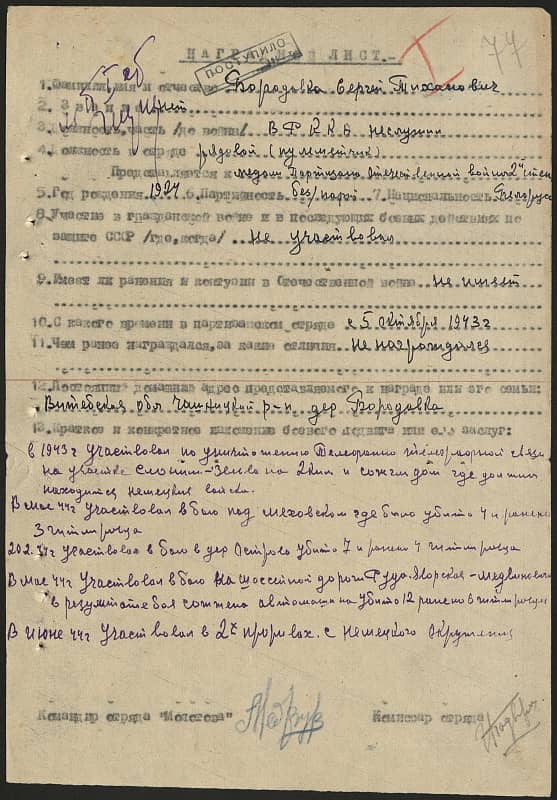 НАГРАДНОЙ ЛИСТ.-
ПОСТУПИЛО
I
77
1. Фамилия имя и отчество Бородовка Сергей Тиханович
2. Звание Нет
3. Должность, часть /где воевал/ В РККА не служил
4. Должность в отряде рядовой (пулеметчик)
Представляется к медали Партизана Отечественной войны 2й степ
5. Год рождения 1924 6. Партийность без/парт 7. Национальность Белорус
8. Участие в гражданской войне и в последующих боевых действиях по
защите СССР /где, когда/ Не участвовал
9. Имеет ли ранения и контузии в Отечественной войне Не имеет
10. С какого времени в партизанском отряде с 5 октября 1943 г
11. Чем ранее награждался, за какие отличия не награждался
12. Постоянный домашний адрес представляемого к награде или его семьи:
Витебская обл Чашницкой р-н дер Бородовка
13. Краткое и конкретное изложение боевого подвига или его заслуг:
в 1943 г участвовал по уничтожению Телефонно телеграфной связи
на участке Слоним-Зельва на 2 км и сожгли дом где должни
находится немецкие войска.
В мае 44 г Участвовал в бою под Меховском где было убито 4 и ранено
3 гитлеровца
20.2.44 г участвовал в бою в дер Острово убито 7 и ранено 4 гитлеровца
В мае 44 г Участвовал в бою на шоссейной дороги Руда-Яворская-Медвиновичи
в результате боя сожжена автомашина убито 12 ранено 6 гитлеровцев
В июне 44 г Участвовал в 2х прорывах с немецкого окружения
Командир отряда "Молотова" Комиссар отряда